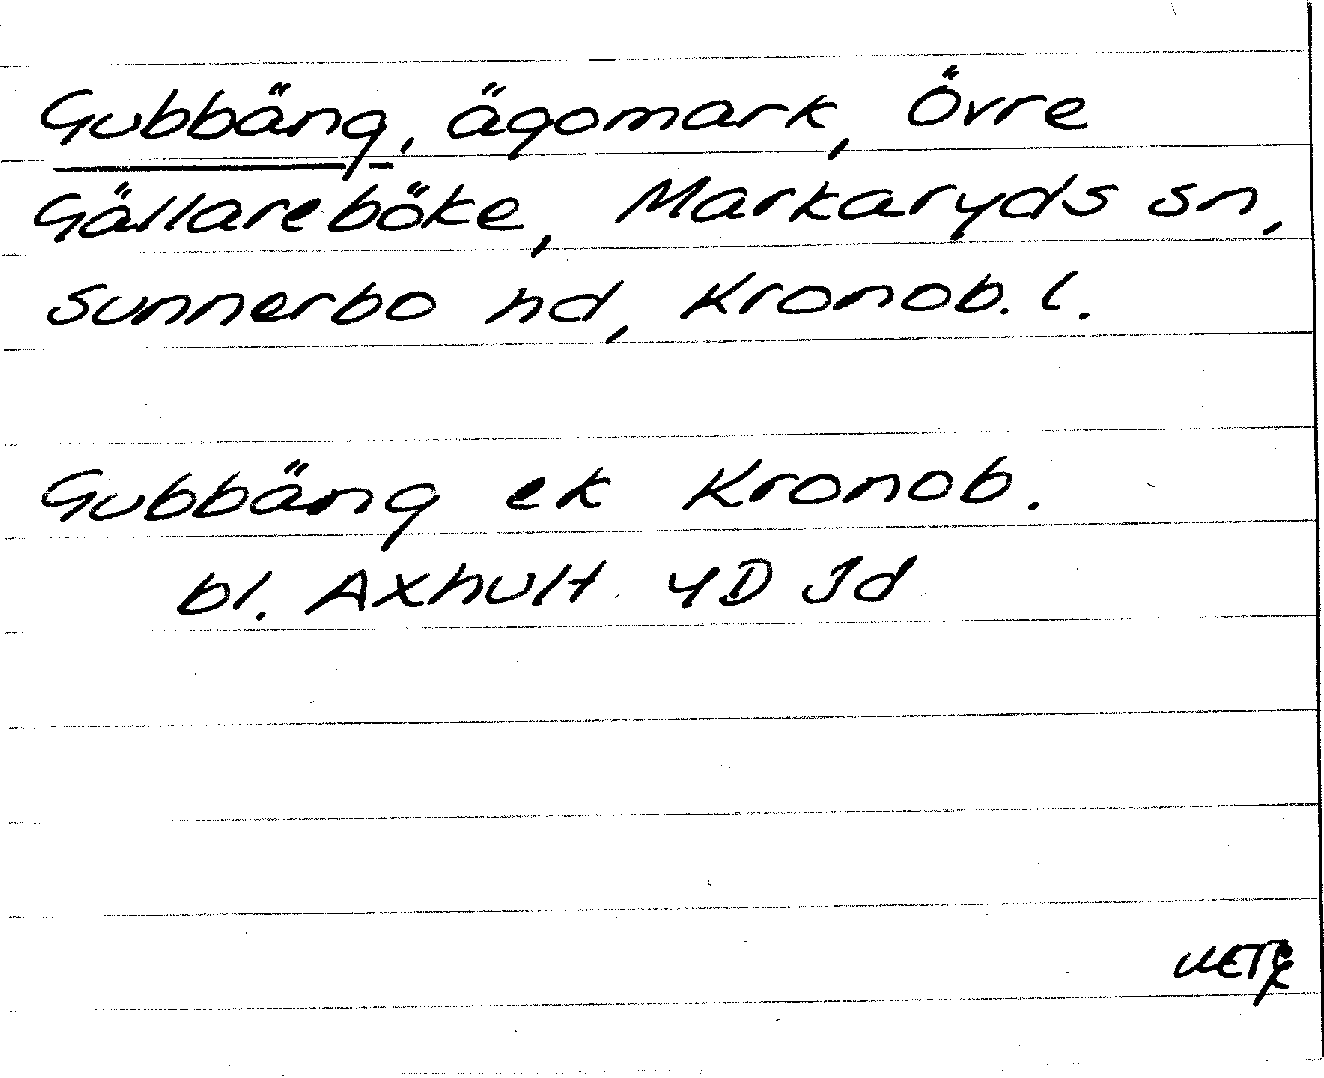 Gubbäng, ägomark, Övre
Gällareböke, Markaryds sn,
Sunnerbo hd, Kronob. l.
Gubbäng ek Kronob.
bl. Axhult 4D Jd